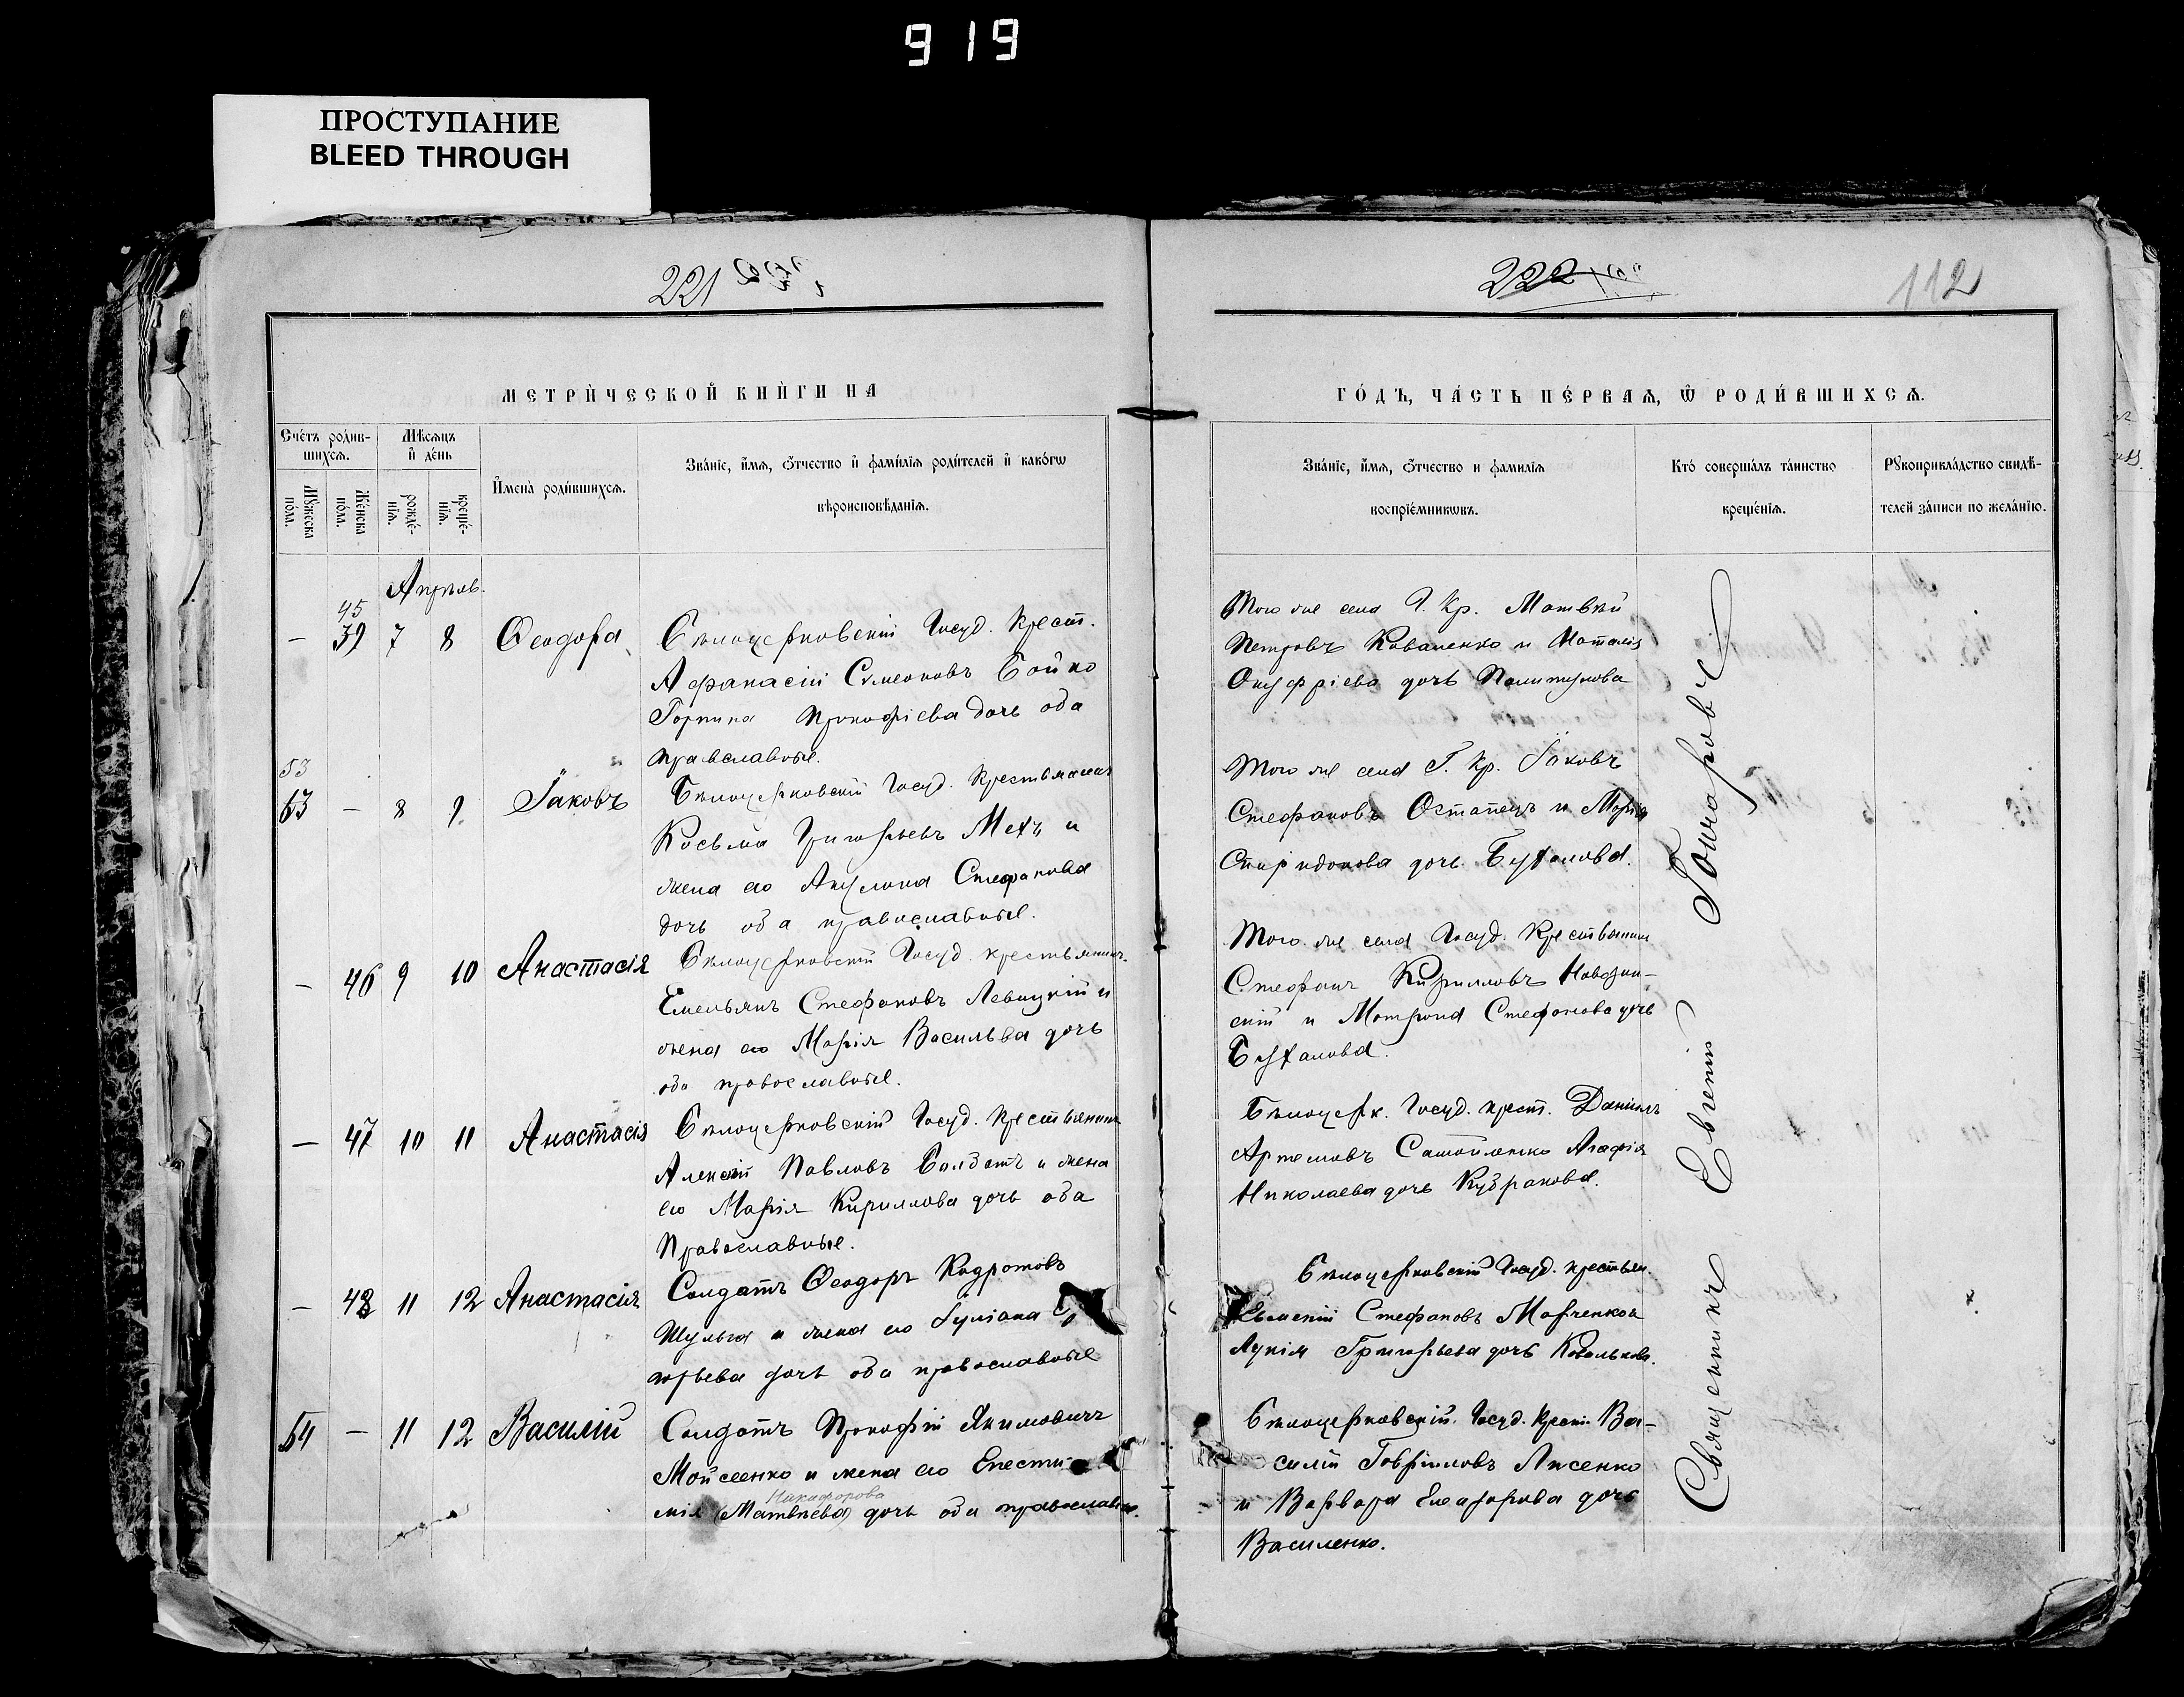 919
ПРОСТУПАНИЕ
BLEED THROUGH
221
222
112
МЕТРИ́ЧЕСКОЙ КНИ́ГИ НА
ГО́ДЪ, ЧА́СТЬ ПЕ́РВАѦ, Ѿ РОДИ́ВШИХСѦ.
Сче́тъ роди́в-
шихсѧ.
Мꙋ́жеска по́ла.
Же́нска по́ла.
Мѣ́сѧцъ и҆ де́нь
рожде́-
нїѧ.
креще́-
нїѧ.
И҆мена̀ роди́вшихсѧ.
Зва́нїе, и҆́мѧ, ѻ҆́тчество и҆ фами́лїѧ роди́телей и҆ како́гѡ
вѣроисповѣ́данїѧ.
Зва́нїе, и҆́мѧ, ѻ҆́тчество и фамилїѧ
воспрїе́мникѡвъ.
Кто̀ соверша́лъ та́инство
креще́нїѧ.
Рꙋкоприкла́дство свидѣ́-
телей за́писи по жела́нїю.
Апрѣль.
45
– 39 7 8 Ѳеодора
Бѣлоцерковскій Госуд. Крест.
Афанасій Сѵмеоновъ Бойко
Горпина Прокофіева дочь оба
православные.
Того же села Г. Кр. Матвѣй
Петровъ Коваленко и Наталія
Онуфріева дочь
53
63 – 8 9 Іаковъ
Бѣлоцерковскій Госуд. Крестьянинъ
Косьма Григорьевъ Мехъ и
жена его Акулина Стефанова
дочь оба православные.
Того же села Г. Кр. Іаковъ
Стефановъ Остапецъ и Марія
Спиридонова дочь
– 46 9 10 Анастасія
Бѣлоцерковскій Госуд. крестьянинъ
Емельянъ Стефановъ Левицкій и
жена его Марія Васильва дочь
оба православные.
Того же села Госуд. Крестьянинъ
Стефанъ Кирилловъ
скій и Матрона Стефанова дочь
– 47 10 11 Анастасія
Бѣлоцерковскій Госуд. Крестьянинъ
Алексій Павловъ и жена
его Марія Кириллова дочь оба
Православные.
Бѣлоцерк. Госуд. крест. Даніилъ
Артемовъ Самойленко Агафія
Николаева дочь Кудракова.
– 48 11 12 Анастасія
Солдатъ Ѳеодоръ Кадратовъ
Шульга и жена его Іуліана
горьева дочь оба православные
Бѣлоцерковскій Госуд. крестьян.
Стефановъ Марченко и
Лукія Григорьева дочь
54 – 11 12 Василій
Солдатъ Прокофій Якимовичъ
Мойсеенко и жена его Епести-
Никифорова
мія (Матвѣева) дочь оба православн.
Бѣлоцерковскій. Госуд. Крест. Ва-
силій Гавріиловъ Лисенко
и Варвара дочь
Василенко.
Священникъ Евгеній Гончаровъ